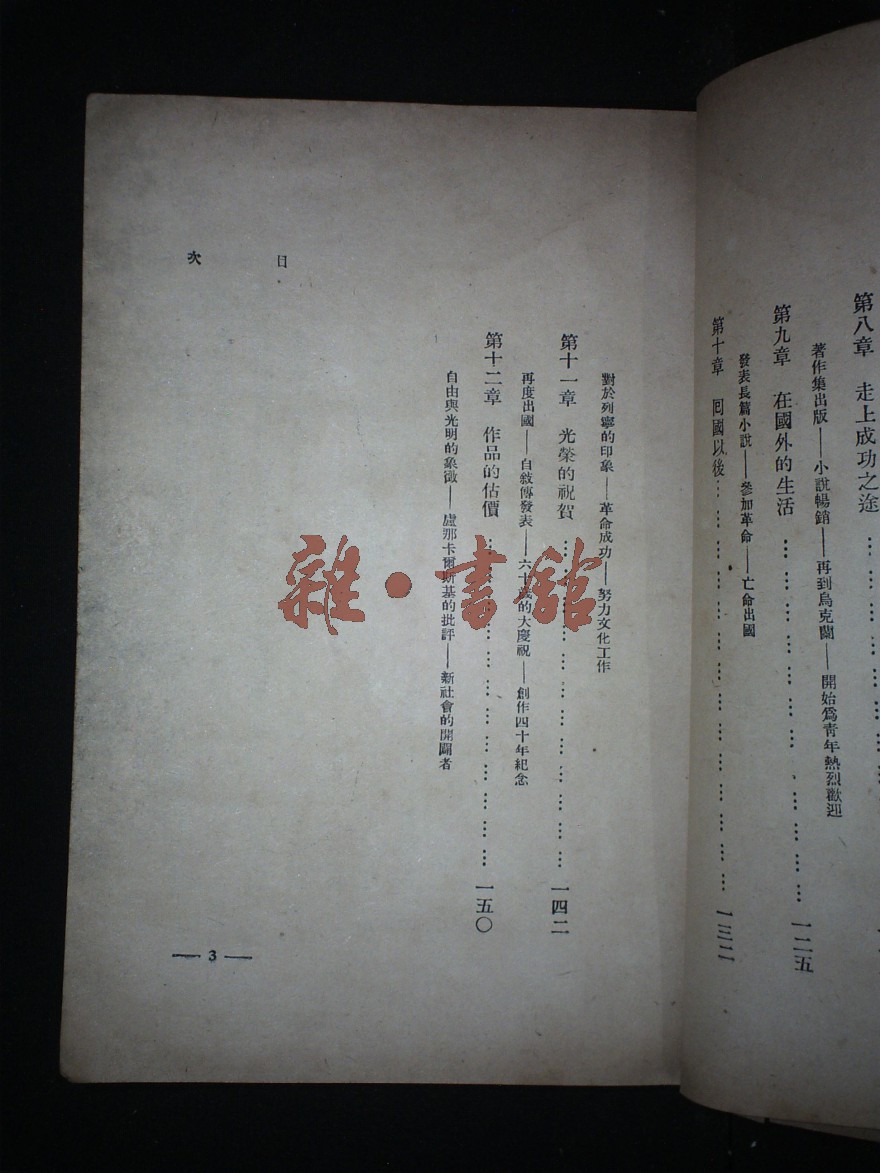 第八章　走上成功之途……
著作集出版——小說暢銷——再到烏克蘭——開始爲青年熱烈歡迎
第九章　在國外的生活……一二五
發表長篇小說——參加革命——亡命出國
第十章　囘國以後……一三二
對於列寧的印象——革命成功——努力文化工作
第十一章　光榮的祝賀……一四二
再度出國——自敘傳發表——六十歲的大慶祝——創作四十年紀念
第十二章　作品的估價……一五〇
自由與光明的象徵——盧那卡爾斯基的批評——新社會的開闢者
目　次
— 3 —
雜·書館